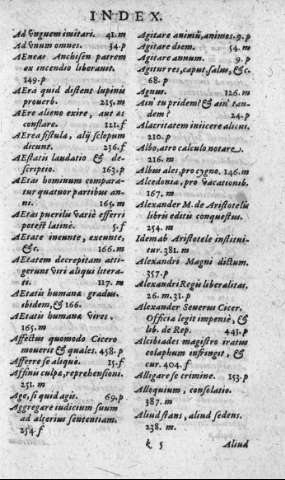 INDEX.
Ad vnguem imitari. 41.m
Ad vnum omnes. 54.p
AEneas Anchisen patrem
ex incendio liberauit.
149.p
AEra quid distent lupinis
prouerb. 215.m
AEre alieno exire, aut eo
conflare. 121.f
AErea fistula, alij sclopum
dicunt. 236.f
AEstatis laudatio & de-
scriptio. 163.p
AEtas hominum compara-
tur quatuor partibus an-
ni. 165.m
AEtas puerilis variè efferri
potest latinè. 5.f
AEtate ineunte, exeunte,
&c. 166.m
AEtatem decrepitam atti-
gerunt viri aliquot littera-
ti. 117.m
AEtatis humanæ gradus
ibidem, & 166.
AEtatis humanæ vires.
165.m
Affectus quomodo Cicero
moueris & quales. 458.p
Afferre se aliquo. 15.f
Affinis culpæ, reprehensioni.
251.m
Age, si quid agis. 69.p
Aggregare iudicium suum
ad alterius sententiam.
254.f
Agitare animũ, animos. 9.p
Agitare diem. 54.m
Agitare annum. 9.p
Agitur res, caput, salus, &c.
68.p
Agnus. 126.m
Ain tu pridem? & ain' tan-
dem? 24.p
Alacritatem iniicere alicui.
210.p
Albo, atro calculo notare.
216.m
Albus ales pro cygno. 146.m
Alcedonia, pro vacationib.
167.m
Alexander M. de Aristotelis
libris editis conquestus.
254.m
Idem ab Aristotele institui-
tur. 381.m
Alexandri Magni dictum.
357.p
Alexandri Regis liberalitas.
26.m. 31.p
Alexander Seuerus Cicer.
Officia legit impensè, &
lib. de Rep. 443.p
Alcibiades magistro iratus
colaphum infringit, &
cur. 404.f
Alligare se crimine. 153.p
Alloquium, consolatio.
387.m
Aliud stans, aliud sedens.
238.m.
k 5 Aliud